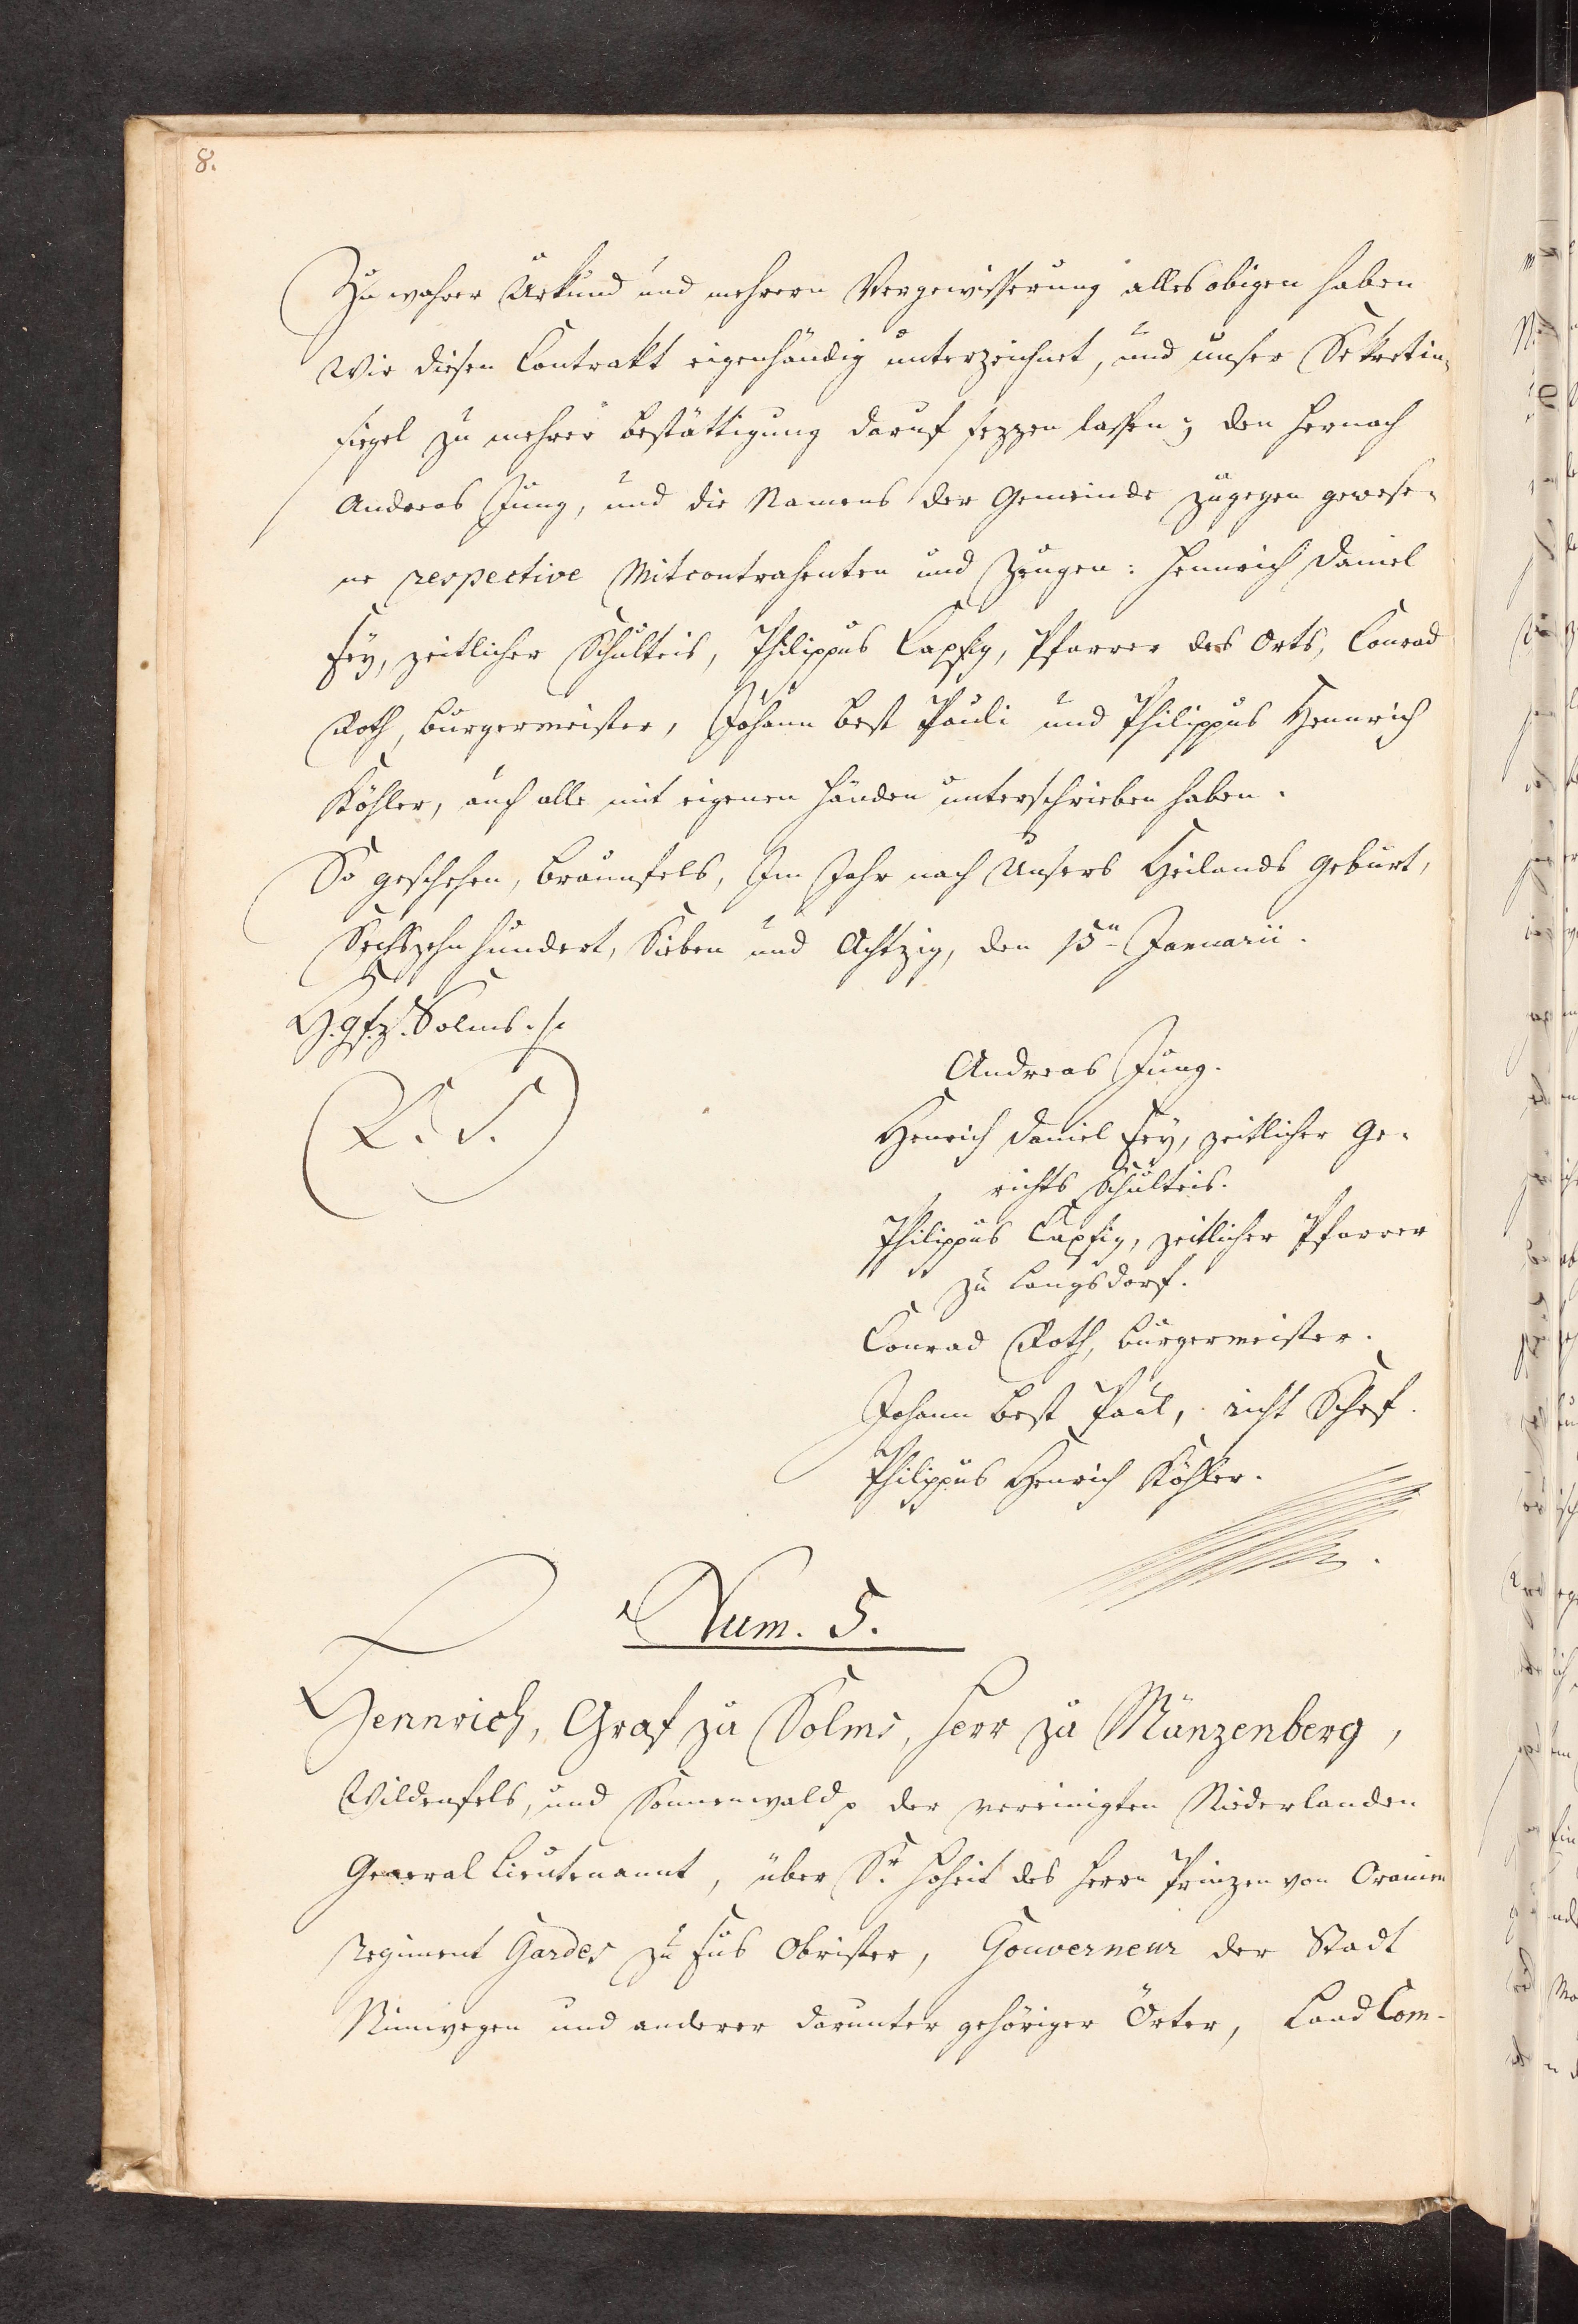 8.
Zu wahrer Urkund und mehrern Vergewisserung alles obigen haben
Wir diesen Contrakt eigenhändig unterzeichnet, und unser Sekretin-
siegel zu mehrer bestättigung daruf sezzen lassen; den hernach
Andreas Jung, und die Namens der Gemeinde zugegen gewese-
ne respective Mitcontrahenten und Zeugen: Hennrich Daniel
Fey, zeitlicher Schulteis, Philippus Capsig, Pfarrer des Orts, Conrad
Roth, burgermeister, Johann best Pauli und Philippus Hennrich
Köhler, auch alle mit eigenen Händen unterschrieben haben.
So geschehen, braunfels, Im Jahr nach Unsers Heilands geburt,
Sechszehn hundert, Sieben und Achtzig, den 15n Januarii.
H. gf. z. Solms. /.
L. S.
Andreas Jung.
Henrich Daniel Fey, zeitlicher Ge-
richts Schulteis.
Philippus Capsig, zeitlicher Pfarrer
zu Langsdorf.
Conrad Roth, burgermeister.
Johann best Paul, richt Schef.
Philippus Henrich Köhler.
Num. 5.
Hennrich, Graf zu Solms, Herr zu Münzenberg,
Wildenfels, und Sonnenwald p der vereinigten Niederlanden
General Lieutenannt, über Sr. Hoheit des Herrn Prinzen von Oranien
Regiment Gardes zu Fus Obrister, Gouverneur der Stadt
Nimwegen und anderer darunter gehöriger Örter, Land Com-